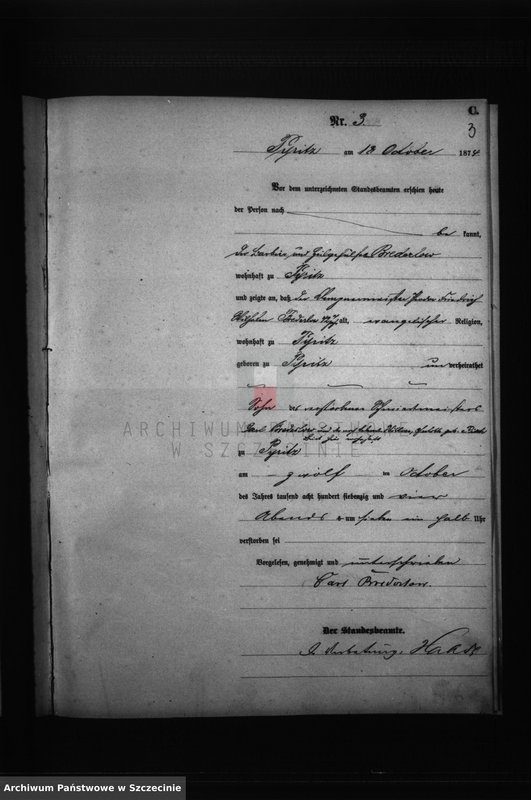 C.
3
Nr. 3.
Pyritz am 13 October 1874
Vor dem unterzeichneten Standesbeamten erschien heute
der Person nach
be kannt,
der Barbier und Heilgehülfe Brederlow
wohnhaft zu Pyritz
und zeigte an, daß der Klempnermeister Friedrich
Wilhelm Brederlow alt, evangelischer Religion,
wohnhaft zu Pyritz
geboren zu Pyritz unverheirathet
Sohn des verstorbenen Schmiedemeisters
Carl Brederlow und
zu Pyritz
am zwölf ten October
des Jahres tausend acht hundert siebenzig und vier
Abends um sieben ein halb Uhr
verstorben sei
Vorgelesen, genehmigt und unterschrieben
Carl Brederlow.
Der Standesbeamte.
In Vertretung. Haase
ARCHIWUM
W SZCZECINIE
Archiwum Państwowe w Szczecinie